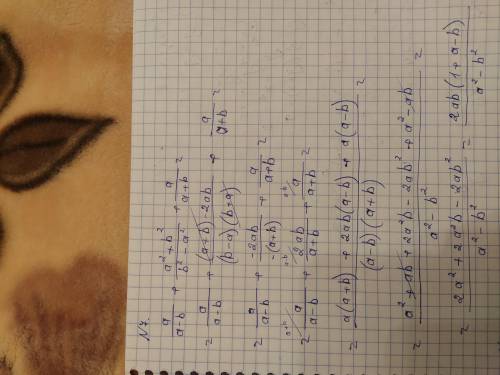 N7.
a/(a-b) + (a²+b²)/(b²-a²) + a/(a+b) =
= a/(a-b) + ((a+b)-2ab)/((b-a)(b+a)) + a/(a+b) =
= a/(a-b) + -2ab/-(a+b) + a/(a+b) =
= a/(a-b) + 2ab/(a+b) + a/(a+b) =
= (a(a+b) + 2ab(a-b) + a(a-b))/((a-b)(a+b)) =
= (a²+ab+2a²b-2ab²+a²-ab)/(a²-b²) =
= (2a²+2a²b-2ab²)/(a²-b²) = 2ab(1+a-b)/(a²-b²)